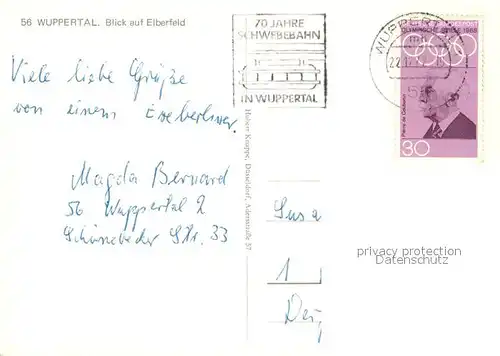 56 WUPPERTAL. Blick auf Elberfeld
70 JAHRE
SCHWEBEBAHN
IN WUPPERTAL
WUPPERT
OLYMPISCHE SPIELE 1968
Pierre de Coubertin
30
Viele liebe Grüße
von einem
Magda Bernard
56 Wuppertal 2
Schönebecker Str. 33
Hubert Knoppe, Düsseldorf, Adersstraße 37
Susa
1
privacy protection
Datenschutz